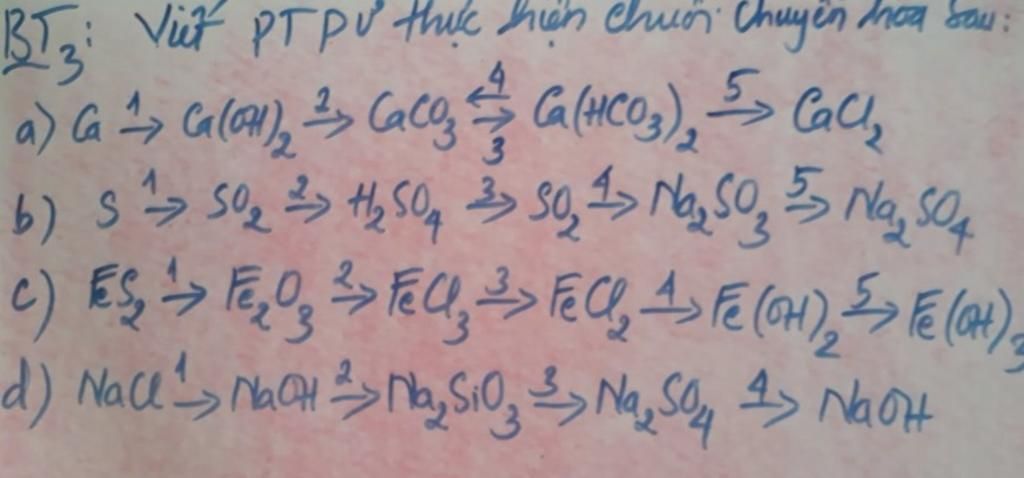 BT3: Viết PTPƯ thực hiện chuỗi chuyển hoá sau:
a) Ca →1 Ca(OH)₂ →2 CaCO₃ ⇄4 3 Ca(HCO₃)₂ →5 CaCl₂
b) S →1 SO₂ →2 H₂SO₄ →3 SO₂ →4 Na₂SO₃ →5 Na₂SO₄
c) FeS₂ →1 Fe₂O₃ →2 FeCl₃ →3 FeCl₂ →4 Fe(OH)₂ →5 Fe(OH)₃
d) NaCl →1 NaOH →2 Na₂SiO₃ →3 Na₂SO₄ →4 NaOH